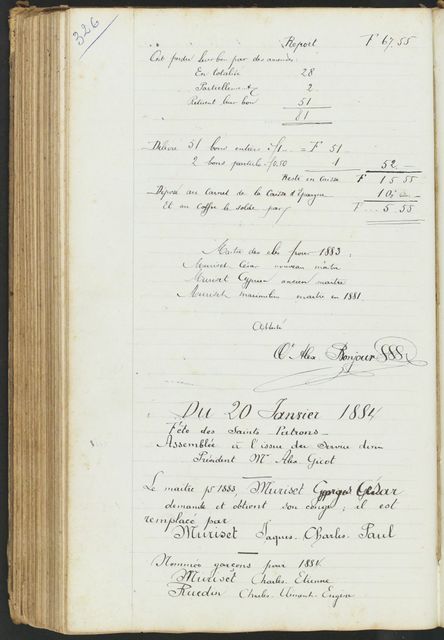 326
Report F 67.55
Ont perdu leur bon par des amendes :
En totalité 28
Partiellement 2
Retient leur bon 51
81
Délivré 51 bons entiers à f1 = F 51
2 bons partiels f 0,50 1 52 —
Reste en caisse F 15.55
Déposé au Carnet de la Caisse d'Epargne 10. —
Et au Coffre le solde par F 5.55
Maitre des clés pour 1883 :
Muriset César nouveau maître
Muriset Cyprien ancien maitre
Muriset maximilien maitre en 1881
Attesté
Alex Bonjour
Du 20 Janvier 1884
Fête des Saints Patrons —
Assemblée à l'issue du Service divin
Président Mr Alex Gicot
Le maitre pr 1883, Muriset Georges César
demande et obtient son congé ; il est
remplacé par
Muriset Jaques-Charles-Paul
Nommés garçons pour 1884
Muriset Charles Etienne
Ruedin Charles Clément Eugène